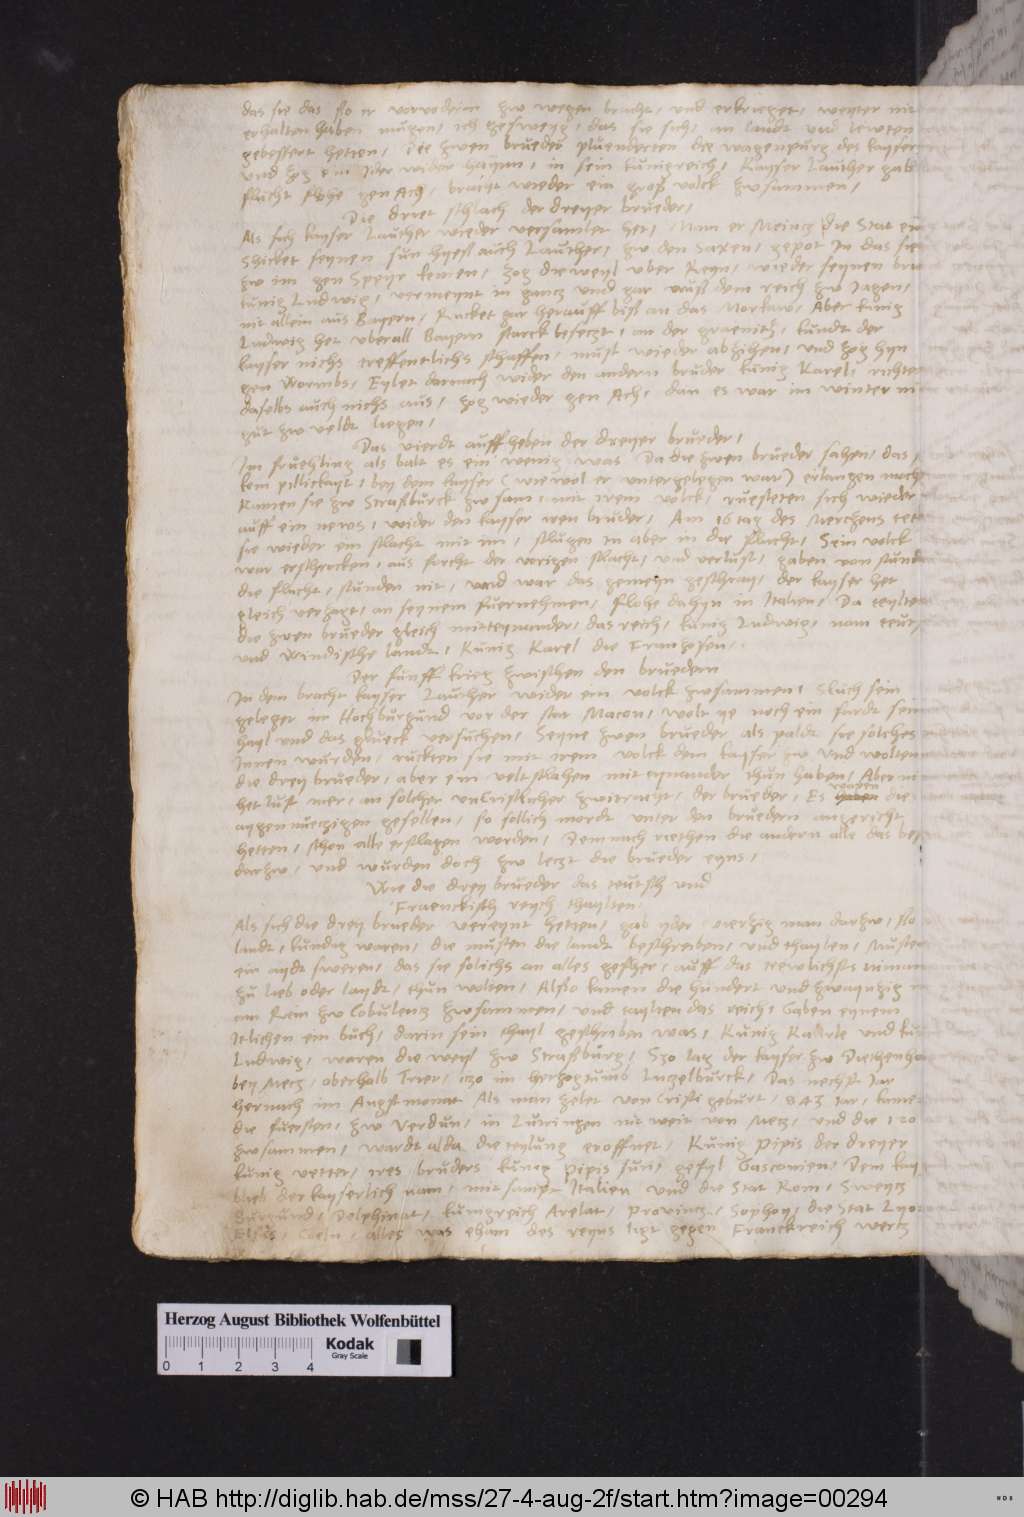 das sie das so ir vorvodern zw wegen bracht, und erkrieget, weyter nit
erhalten haben mugen, ich gesweyg, das sie sich, an landt und lewten
gebessert hetten, Die zwen brueder pluenderten die wagenpurg des kayser
und zog ein Jder wider haym, in sein kunigreich, Kayser Lauther gab
flucht flohe gen Ach, bracht wieder ein groß volck zwsammen,
Die driet schlach der dreyer brueder,
Als sich kayser Lauther wieder versamlet het, Nam er Meincz die Stat ein
Shicket seynen sun hyeß auch Lauther, zw den Saxen, gepot In das sie
zw im gen Speyr kemen, zog die weyl uber Reyn, wieder seynen bru
kunig Ludwig, vermeynt in gancz und gar auß dem reich zw Jagen,
nit allein aus Bayern, Rucket gar herauff biß an das Norkaw, Aber kunig
Ludwig het uberall Bayern starck beseczt, an der graenitz, kundt der
kayser nichs ereffentlichs schaffen, must wieder abzihen, und zog hyn
gen Wormbs, Eylet darnach wider den andern bruder kunig Karel, richtet
daselbs auch nichs aus, zog wieder gen Ach, dan es war im winter ni
gut zw veldt liegen,
Das vierdt auffheben der dreyer brueder,
Im fruehling als balt es ein wenig was Da die zwen brueder sahen, das
kem pillickayt, bey dem kayser (wiewol er untergelegen war) erlangen mocht
Kamen sie zw Straßburck zwsam, mit irem volck, ruesteten sich wieder
auff ein news, wider den kayser iren bruder, Am 16 tag des Merchens tet
sie wieder ein schlacht mit im, schlugen In aber in die flucht, Sein volck
war erschrocken, aus forcht der vorigen schlacht, und verlust, gaben von stund
die flucht, stunden nit, und war das gemeyn geschray, der kayser het
gleich verzagt, an seynem fuernehmen, flohe dahyn in Italien, Da teylten
die zwen brueder gleich mitteynander, das reich, kunig Ludwig, nam teut
und Windische landt, Kunig Karel die Franhosen,
Der funff krieg zwischen den bruedern
In dem bracht kayser Lauther wider ein volck zwsammen, Sluch sein
geleger in Hochburgund vor der stat Macon, wolt ye noch ein fardt sein
hayl und das glueck versuchen, Seyne zwen brueder als paldt sie solches
Innen wurden, ruckten sie mit irem volck dem kayser zw und wolten
die drey brueder, aber ein velt schlahen mit eynander thun haben, Aber ni
het lust mer, an solcher unCristlicher zwitracht, der brueder, Es haben waren die
aygennueczigen gesellen, so sollich mordt unter den bruedern angericht
hetten, schon alle erschlagen worden, Demnach riethen die andern alle das bes
darzw, und wurden doch zw leczt die brueder eyns,
Wie die drey brueder das teutsch und
Franckisch reych thaylten,
Als sich die drey brueder vereynt hetten, gab yder vierhig man darzw, so
landt, kundig waren, die musten die landt beschreiben, und thaylen, Musten
ein aydt sweren, das sie solichs an alles gefher, auff das trewlichsts niman
zu lieb oder laydt, thun wolten, Also kamen die hundert und zwaynhig
am Rein zw Cobulentz zwsammen, und taylten das reich, Gaben eynem
Itlichen ein buch, darin sein thayl geschriben was, Kunig Karle und kun
Ludwig, waren die weyl zw Straßburg, Szo lag der kayser zw Diethenhof
bey Mecz, oberhalb Trier, izo im herzogtumb Luczelburck, Das nechst Jar
hernach im Augstmonat Als man zelet von Cristi geburt, 843 Jar, kamen
die fuersten, zw Verdun, in Lutringen nit weit von Mecz, und die 120
zwsammen, wardt alda die teylung eroffnet, Kunig Pipis der dreyer
kunig vetter, ires bruders kunig Pipis sun, gefyl Gasconien, Dem kay
bleb der kayserlich nam, mit sampt Italien und die Stat Rom, Sweycz
Burgund, Delphinat, kunigreich Arelat, Provincz, Sophoy, die Stat Lyo
Elsas, Coeln, alles was eham des reyns ligt gegen Franckreich wertz
Herzog August Bibliothek Wolfenbüttel
Kodak
Gray Scale
0 1 2 3 4
© HAB http://diglib.hab.de/mss/27-4-aug-2f/start.htm?image=00294